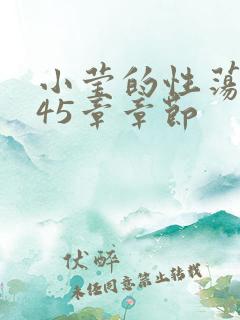 小莹的性荡
45章章节
伏醉
未经同意禁止转载